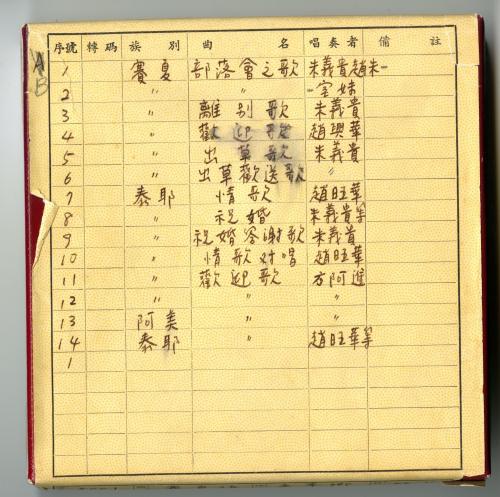 序號 轉碼 族別 曲名 唱奏者 備註
A
B
1 賽夏 部落會之歌 朱義貴趙朱一
2 〃 〃 一室妹
3 〃 離别歌 朱義貴
4 〃 歡迎歌 趙興華
5 〃 出草歌 朱義貴
6 〃 出草歡送歌 〃
7 泰耶 情歌 趙旺華
8 〃 祝婚 朱義貴等
9 〃 祝婚答謝歌 朱義貴
10 〃 情歌对唱 趙旺華
11 〃 歡迎歌 方阿進
12 〃 〃 〃
13 阿美 〃 〃
14 泰耶 〃 趙旺華等
1